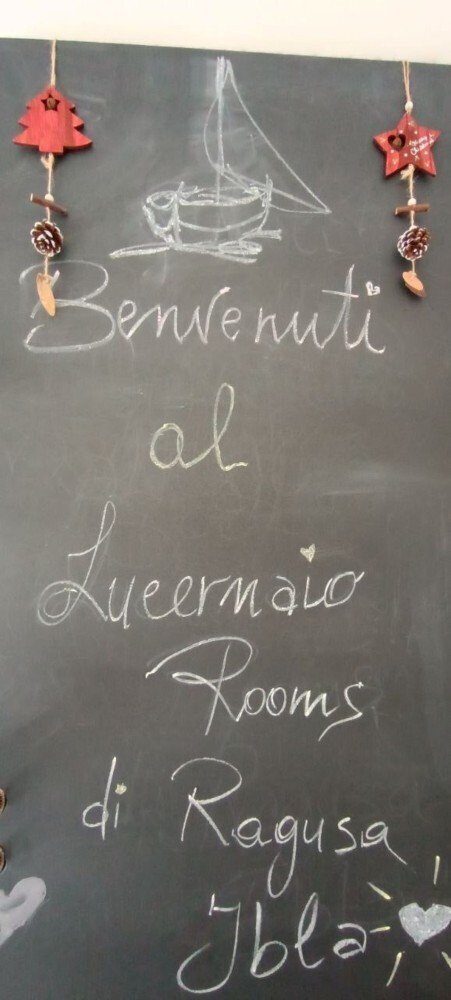 Benvenuti
al
Lucernaio
Rooms
di Ragusa
Ibla